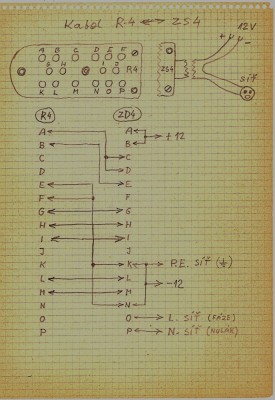 Kabel R-4 <-> ZS4
12V
+ -
A B C D E F
G H I J
R4
ZS4
K L M N O P
SÍŤ
R4 ZD4
A A
B B + 12
C C
D D
E E
F F
G G
H H
I I
J J
K K P.E. SÍŤ (⏚)
L L
M M -12
N N
O O L. SÍŤ (FÁZE)
P P N. SÍŤ (NULÁK)